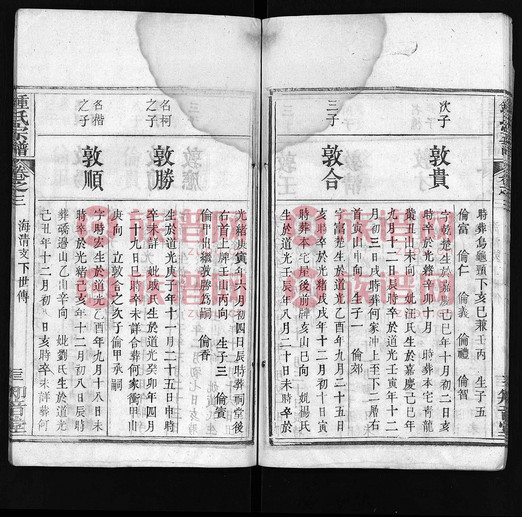 時葬烏龜頸下亥巳兼壬丙 生子五
倫富 倫仁 倫義 倫禮 倫智
次子
敦貴
字乾
生於嘉慶
年十月初二日亥
時卒於光緒辛卯十月 時葬本宅青龍
嘴丑山未向 妣汪氏生於嘉慶己巳年
九月十二日辰時卒於道光壬寅年十二
月初三日戌時葬何家沖上至下二層右
首寅山申向 生子一 倫郊
三子
敦合
字富
生於道光乙酉年九月二十五日
亥時卒於光緒戊戌年十二月初十日寅
時葬本宅屋後前牌亥山巳向 妣楊氏
生於道光壬辰年八月二十日未時卒於
光緒庚寅年六月初四日辰時葬祠堂後
右首上牌壬山丙向 生子三 倫賓
倫甲出繼敦勝爲嗣 倫香
名柯之子
敦勝
生於道光庚子年十一月二十五日申時
卒未詳 妣
氏生於道光癸卯年四月
二十九日巳時卒未詳合葬何家衝甲山
庚向 立敦合之次子倫甲承嗣
名楷之子
敦順
字時宏生於道光乙酉年九月十八日未
時卒於光緒己亥年十二月初八日辰時
葬礄邊山乙山辛向 妣劉氏生於道光
己丑年十二月初八日亥時卒未詳葬何
鍾氏宗譜
卷之三
海青支下世傳